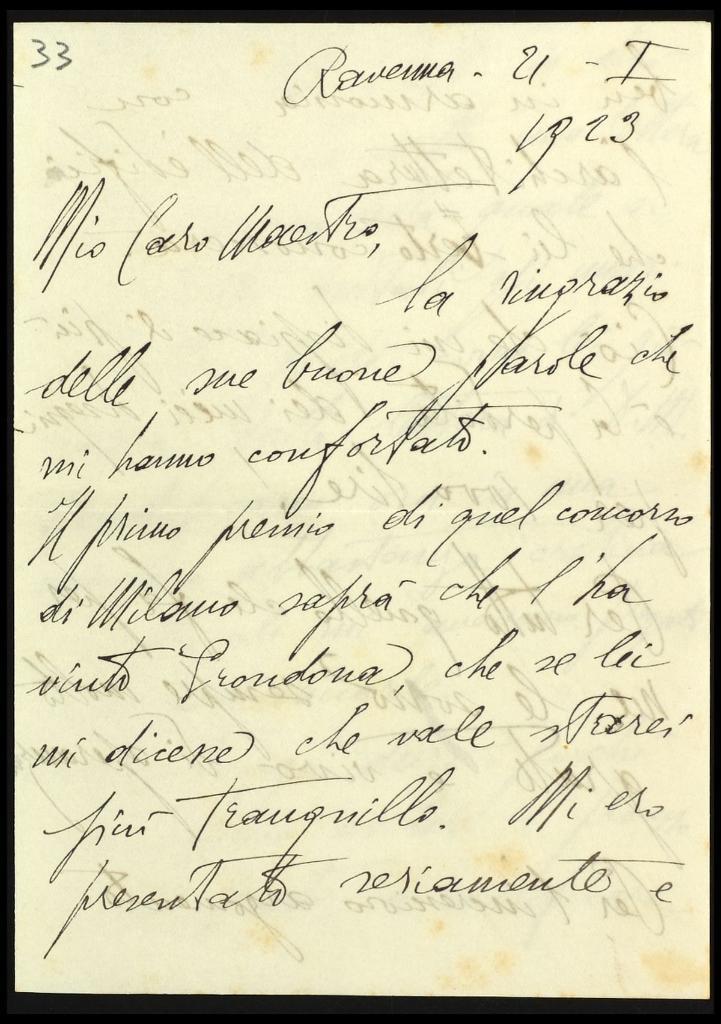 33
Ravenna - 21 - I
1923
Mio Caro Maestro,
la ringrazio
delle sue buone parole che
mi hanno confortato.
Il primo premio di quel concorso
di Milano saprà che l'ha
vinto Grondona, che se lei
mi dicesse che vale starei
più tranquillo. Mi ero
presentato seriamente e